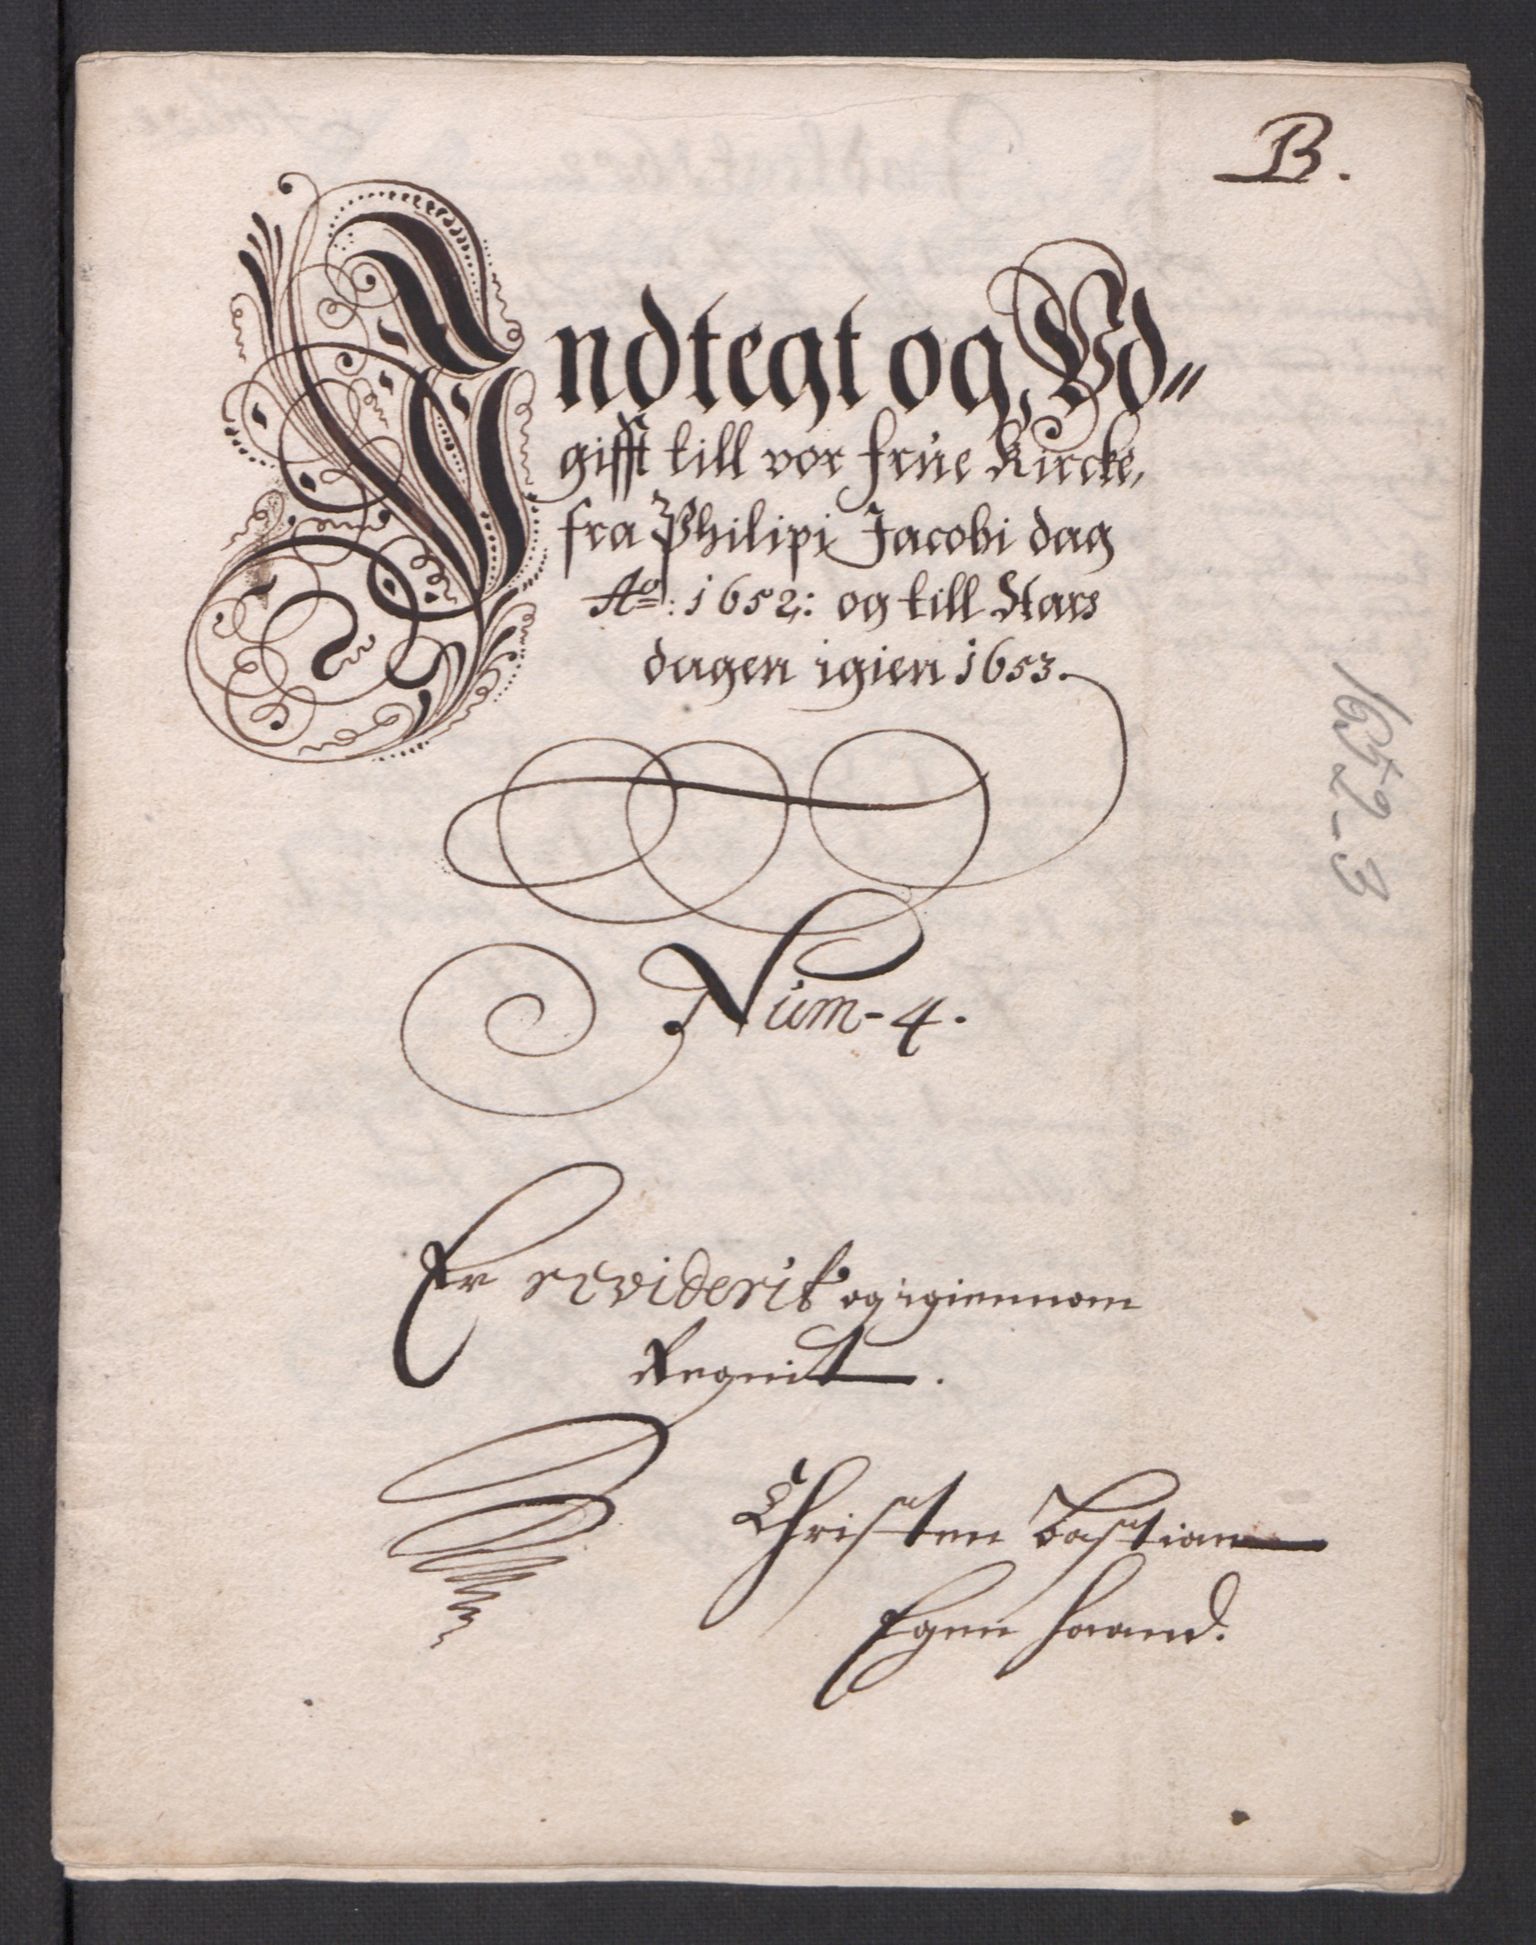 B.
Indtegt og Vd⸗
gifft till vor frue Kircke,
fra Philipi Jacobi dag
Aº: 1652: og till Aars
dagen igien 1653.
1652-3
Num-4.
Er reviderit og igiennom
Regnit.
Christen Bastian
Egen haand.